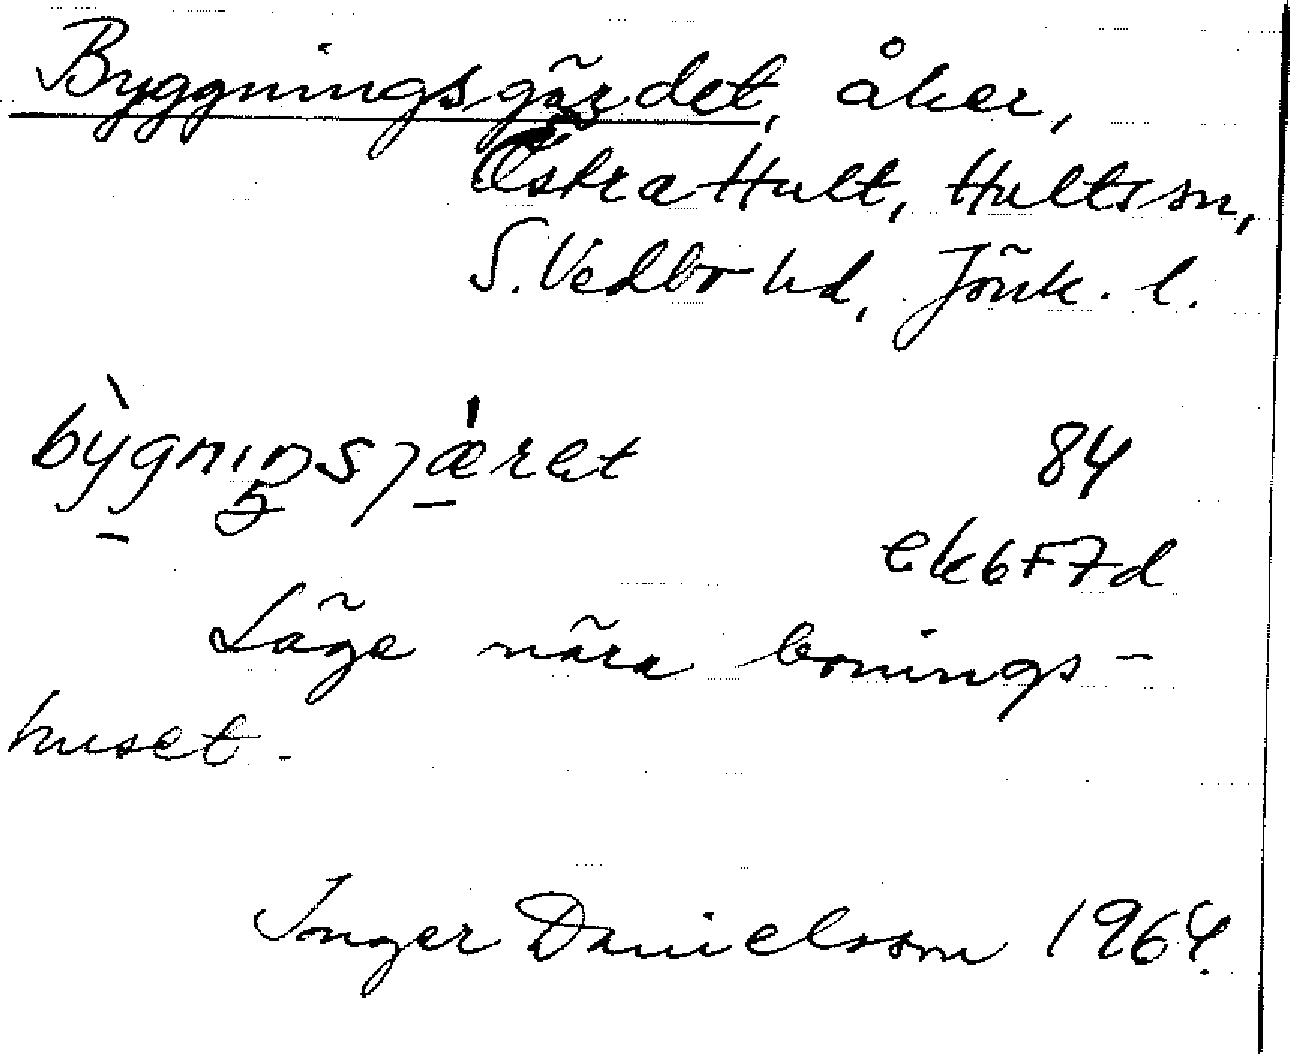 Byggningsgärdet, åker,
Östra Hult, Hultsson,
S. Vedbo hd, Jönk. l.
bỳgniŋsjæ̀ret 84
ek 6 F 7 d
Läge nära bonings-
huset.
Inger Danielsson 1964.